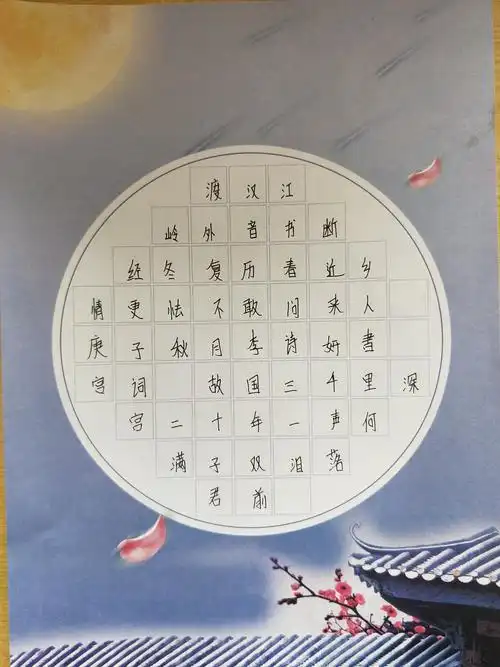 渡汉江
岭外音书断
经冬复历春近乡
情更怯不敢问来人
庚子秋月李诗妍书
宫词 故国三千里深
宫二十年一声何
满子双泪落
君前